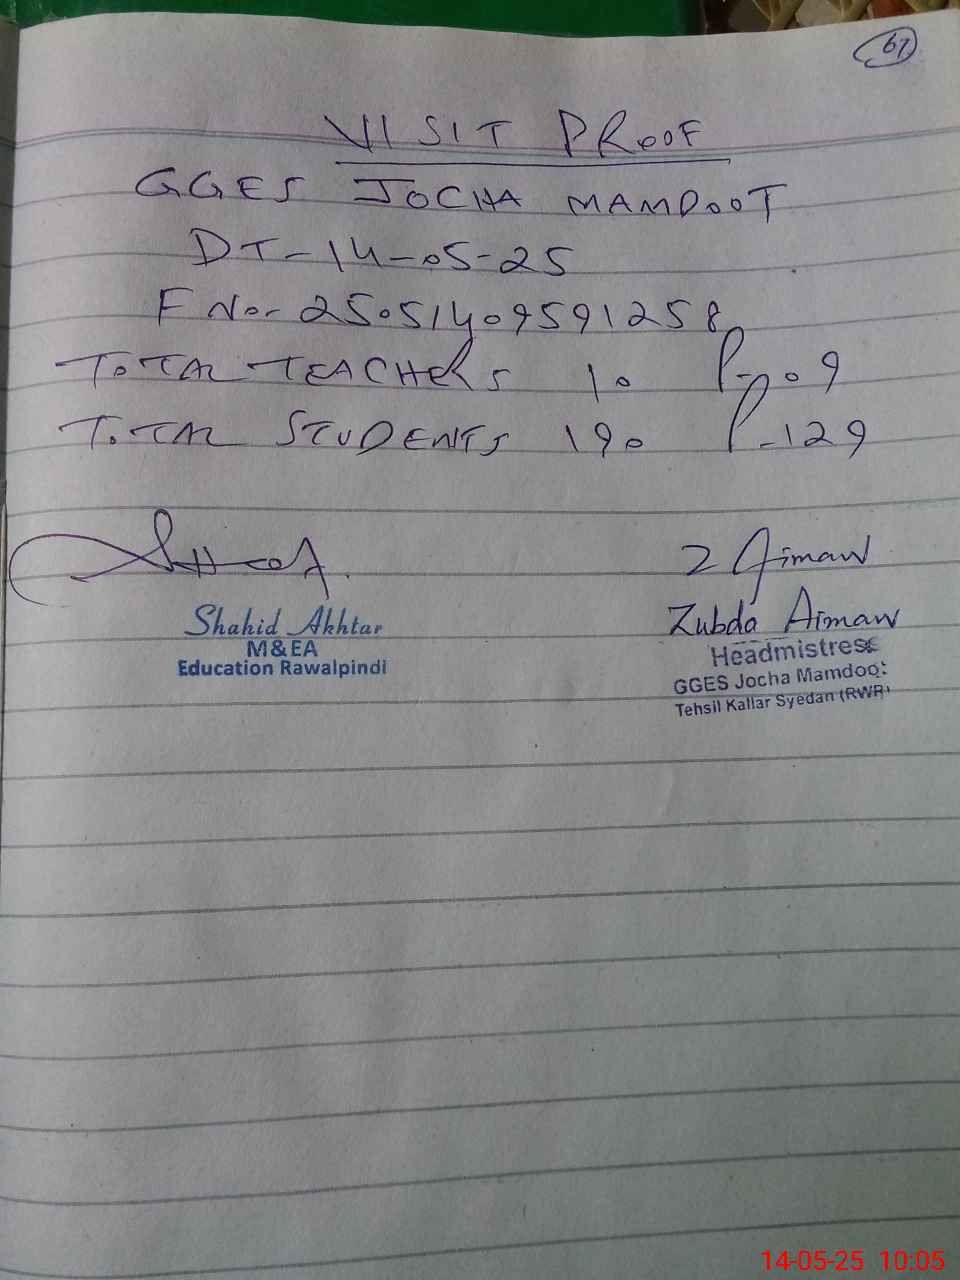 67
VISIT PROOF
GGES JOCHA MAMDOOT
DT-14-05-25
F No- 25051409591258
TOTAL TEACHERS 10 P-09
TOTAL STUDENTS 190 P-129
Z Aiman
Shahid Akhtar
M&EA
Education Rawalpindi
Zubda Aiman
Headmistress
GGES Jocha Mamdoot
Tehsil Kallar Syedan (RWP)
14-05-25 10:05